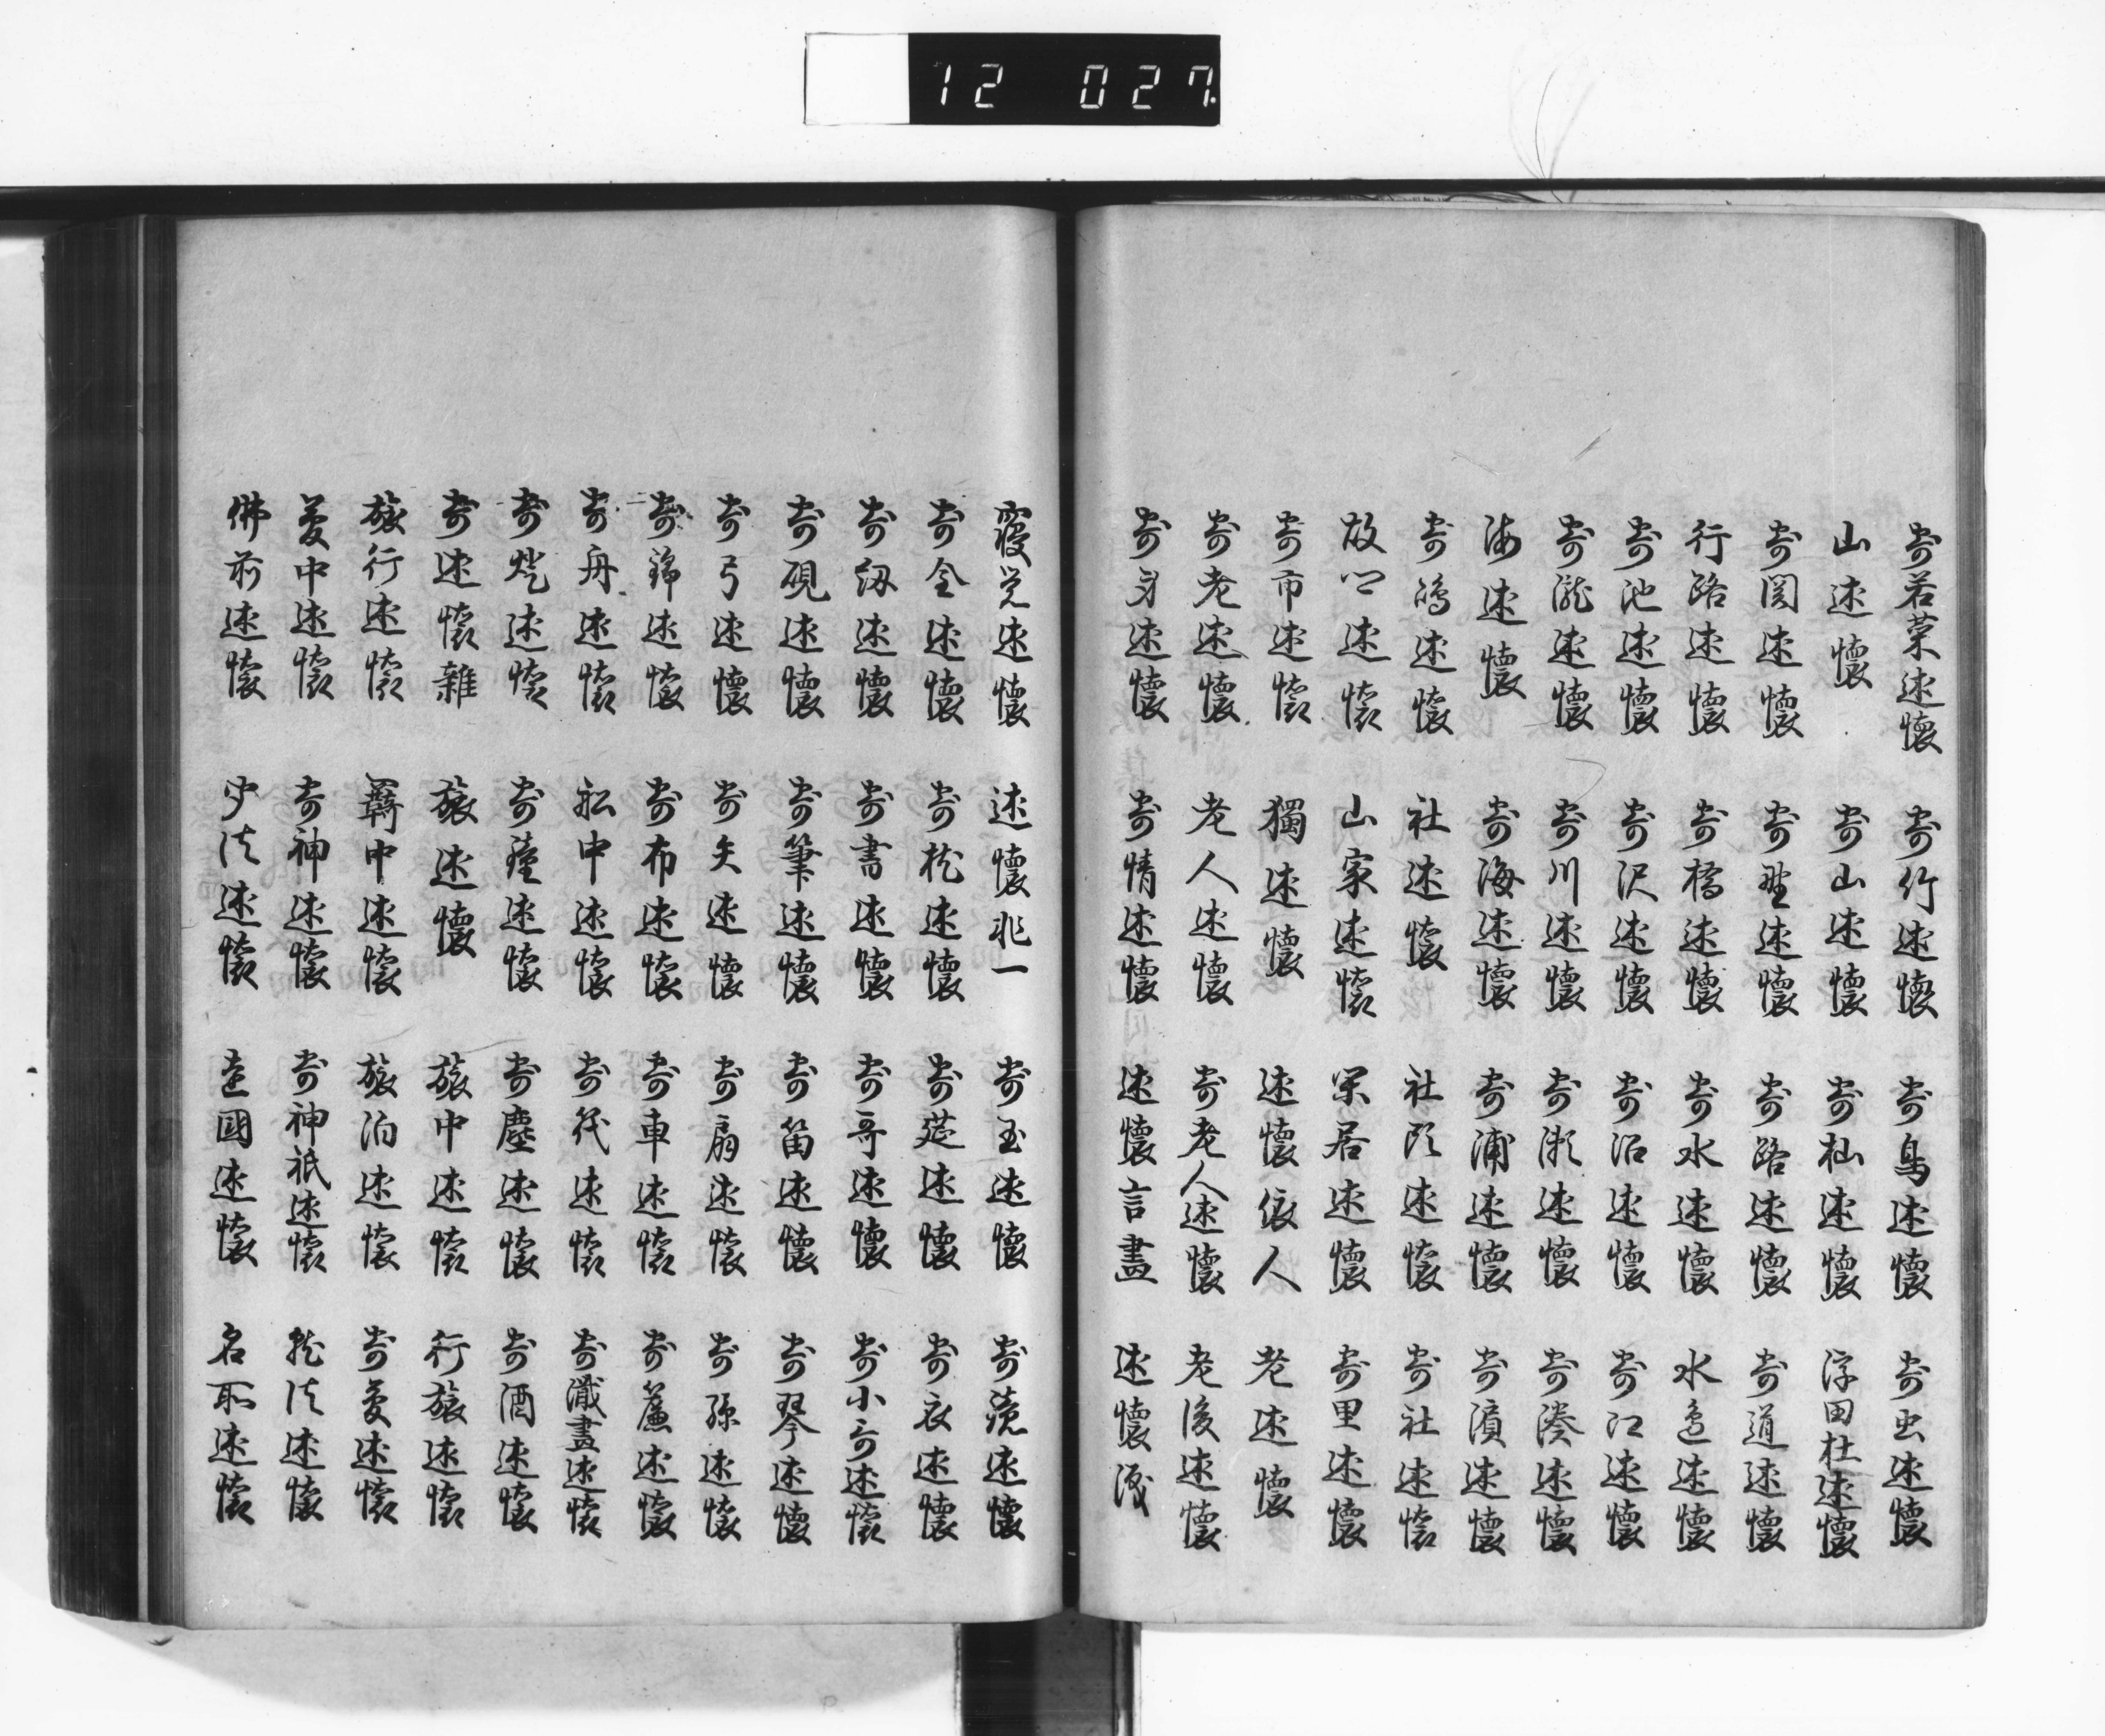 12 027
寄若菜述懐 寄竹述懐 寄鳥述懐 寄虫述懐
山述懐 寄山述懐 寄杣述懐 浮田杜述懐
寄関述懐 寄野述懐 寄路述懐 寄道述懐
行路述懐 寄橋述懐 寄水述懐 水邊述懐
寄池述懐 寄沢述懐 寄沼述懐 寄江述懐
寄瀧述懐 寄川述懐 寄瀬述懐 寄湊述懐
海述懐 寄海述懐 寄浦述懐 寄濱述懐
寄嶋述懐 社述懐 社頭述懐 寄社述懐
故郷述懐 山家述懐 閑居述懐 寄里述懐
寄市述懐 獨述懐 述懐依人 老述懐
寄老述懐 老人述懐 寄老人述懐 老後述懐
寄身述懐 寄情述懐 述懐言盡 述懐涙
寝覚述懐 述懐非一 寄玉述懐 寄鏡述懐
寄金述懐 寄枕述懐 寄莚述懐 寄衣述懐
寄釼述懐 寄書述懐 寄哥述懐 寄小哥述懐
寄硯述懐 寄筆述懐 寄笛述懐 寄琴述懐
寄弓述懐 寄矢述懐 寄扇述懐 寄弦述懐
寄錦述懐 寄布述懐 寄車述懐 寄簾述懐
寄舟述懐 船中述懐 寄筏述懐 寄盡述懐
寄述懐 寄述懐 寄塵述懐 寄酒述懐
寄述懐雜 旅述懐 旅中述懐 行旅述懐
旅行述懐 羇中述懐 旅泊述懐 寄夢述懐
夢中述懐 寄神述懐 寄神祇述懐 述懐
佛前述懐 述懐 遠國述懐 名所述懐